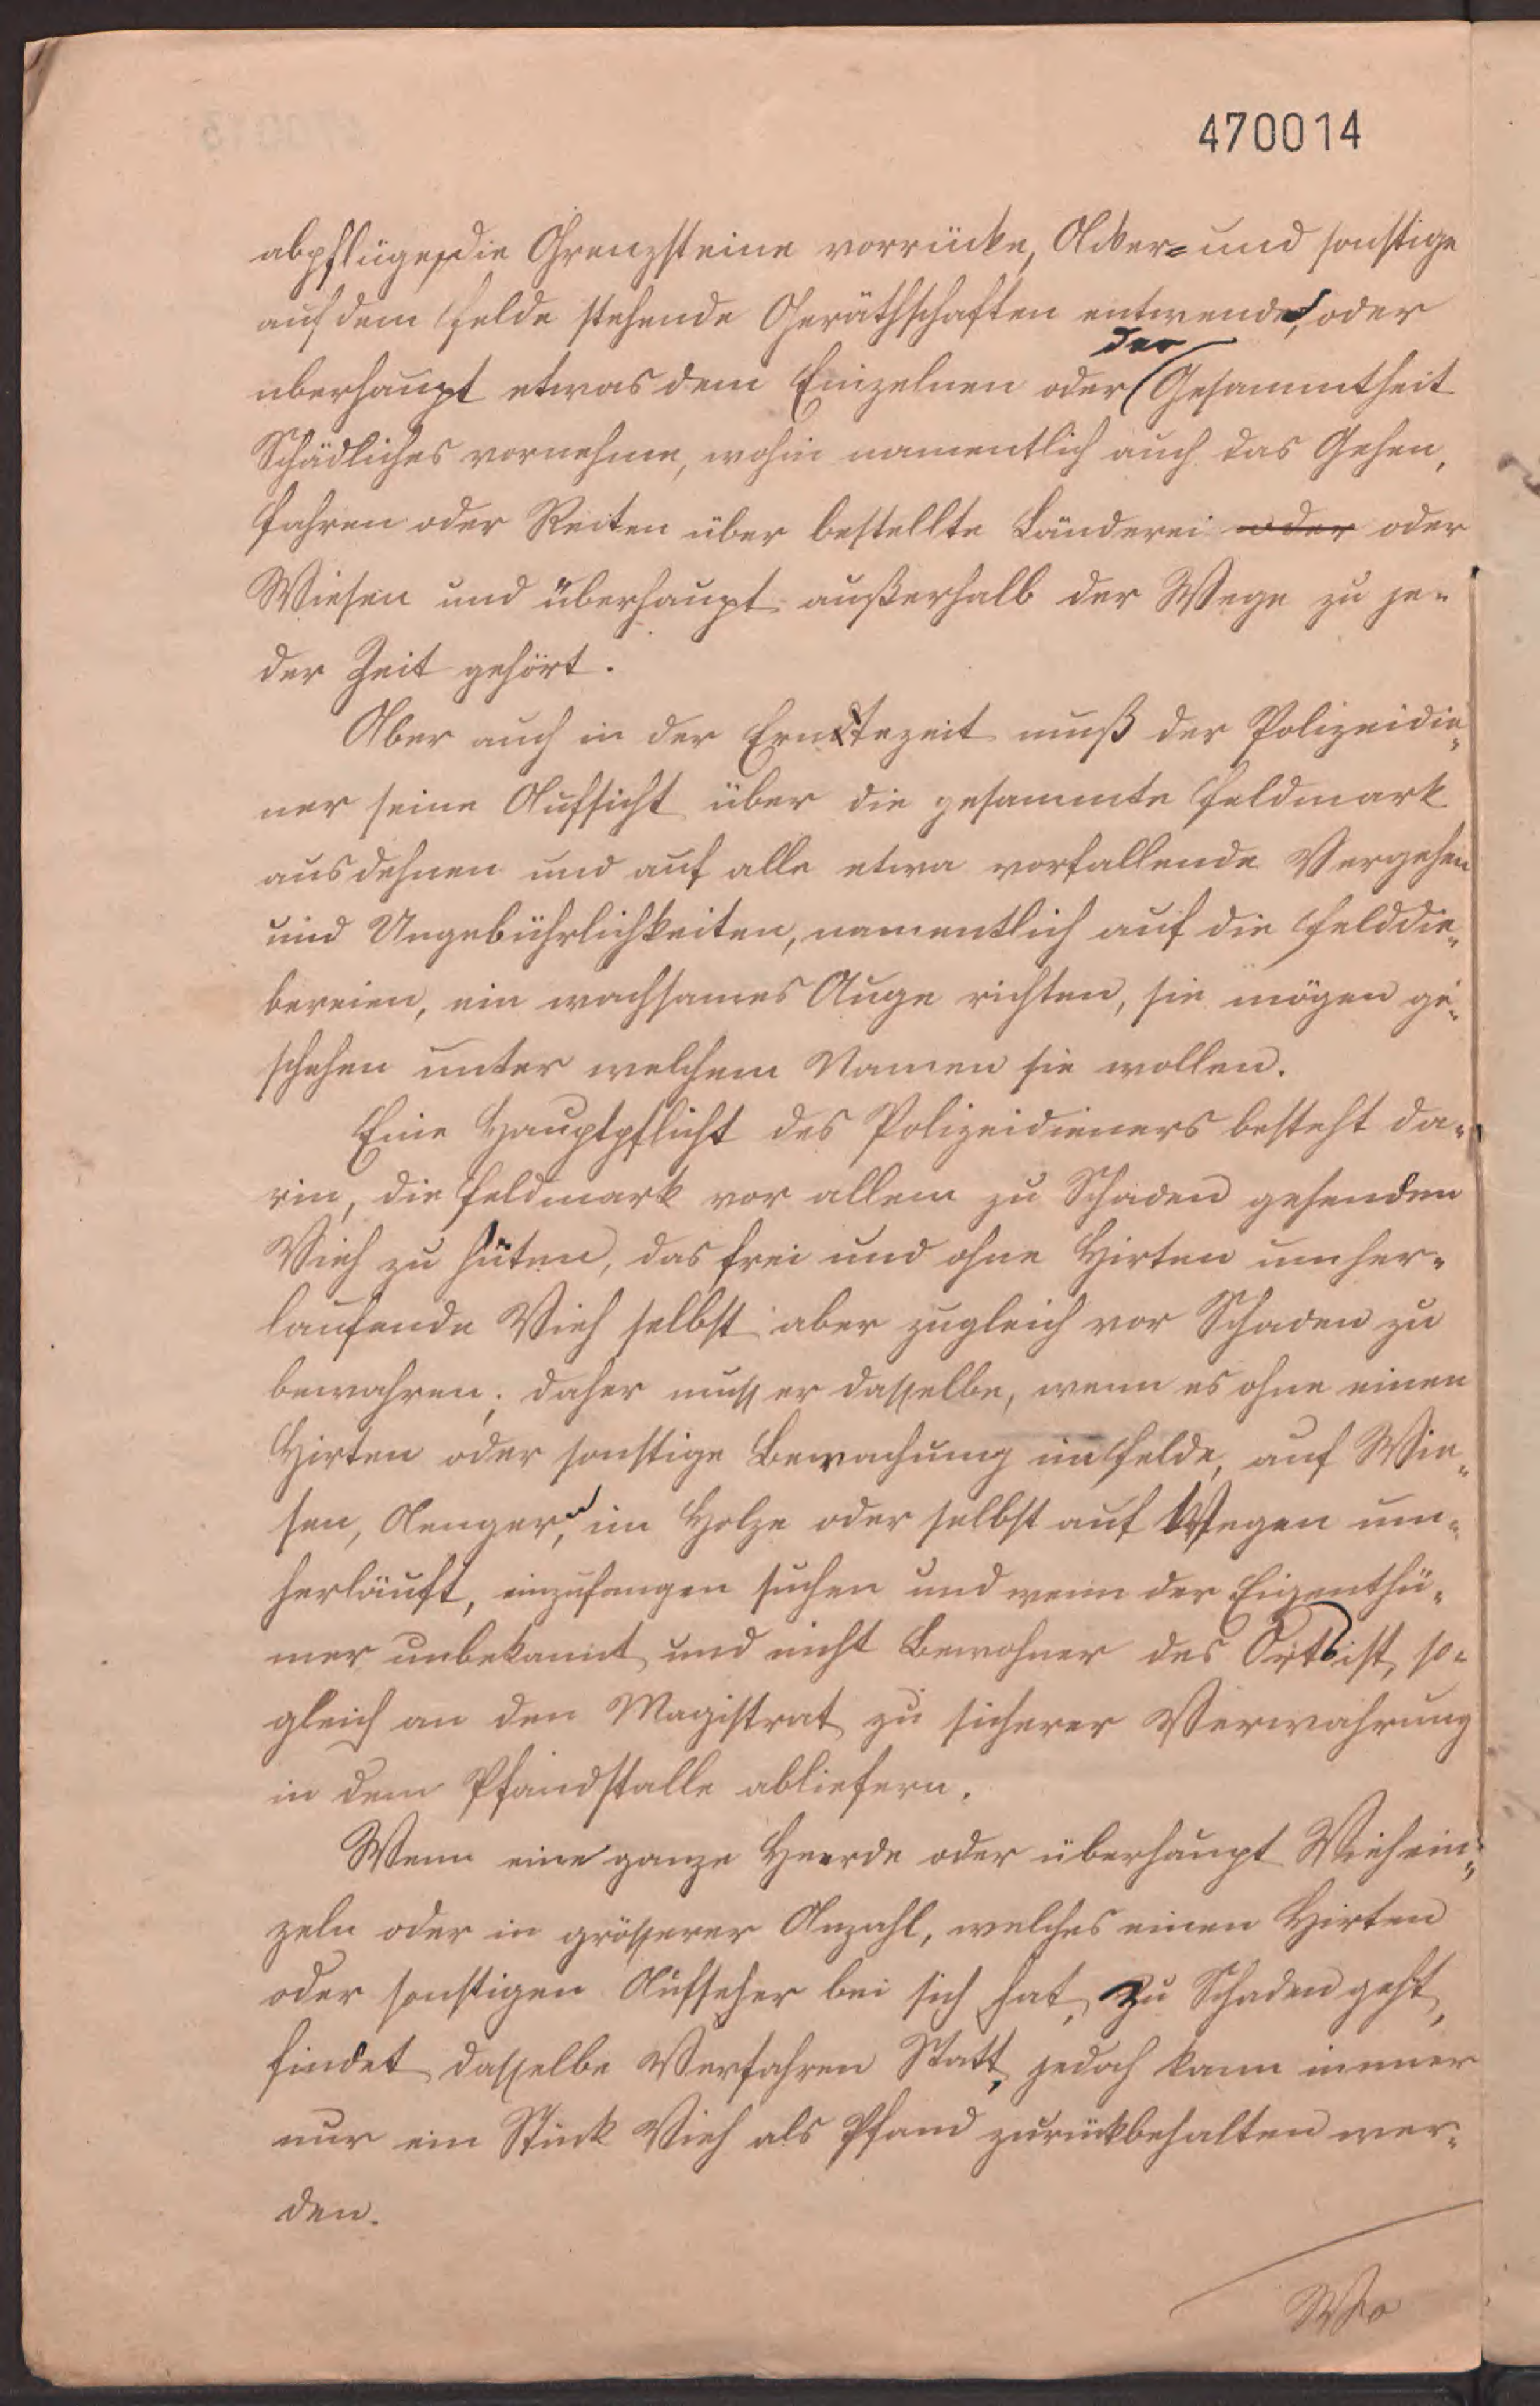 470014
abpflüge, die Grenzsteine vorrücke, Acker= und sonstige
auf dem Felde stehende Geräthschaften entwende, oder
überhaupt etwas dem Einzelnen oder der Gesammtheit
Schädliches vornehme, wohin namentlich auch das Gehen,
Fahren oder Reiten über bestellte Länderei oder oder
Wiesen und überhaupt außerhalb der Wege zu je-
der Zeit gehört.
Aber auch in der Erntezeit muß der Polizeidie-
ner seine Aufsicht über die gesammte Feldmark
ausdehnen und auf alle etwa vorfallende Vergehen
und Ungebührlichkeiten, namentlich auf die Felddie-
bereien, ein wachsames Auge richten, sie mögen ge-
schehen unter welchem Namen sie wollen.
Eine Hauptpflicht des Polizeidieners besteht da-
rin, die Feldmark vor allem zu Schaden gehenden
Vieh zu hüten, das frei und ohne Hirten umher-
laufende Vieh selbst aber zugleich vor Schaden zu
bewahren; daher muss er dasselbe, wenn es ohne einen
Hirten oder sonstige Bewachung im Felde, auf Wie-
sen, Aengern, im Holze oder selbst auf Wegen um-
herläuft, einzufangen suchen und wenn der Eigenthü-
mer unbekannt und nicht Bewohner des Orts ist, so-
gleich an den Magistrat zu sicherer Verwahrung
in dem Pfandstalle abliefern.
Wenn eine ganze Heerde oder überhaupt Vieh ein-
zeln oder in grösserer Anzahl, welches einen Hirten
oder sonstigen Aufseher bei sich hat, zu Schaden geht,
findet dasselbe Verfahren Statt, jedoch kann immer
nur ein Stück Vieh als Pfand zurückbehalten wer-
den.
Wo